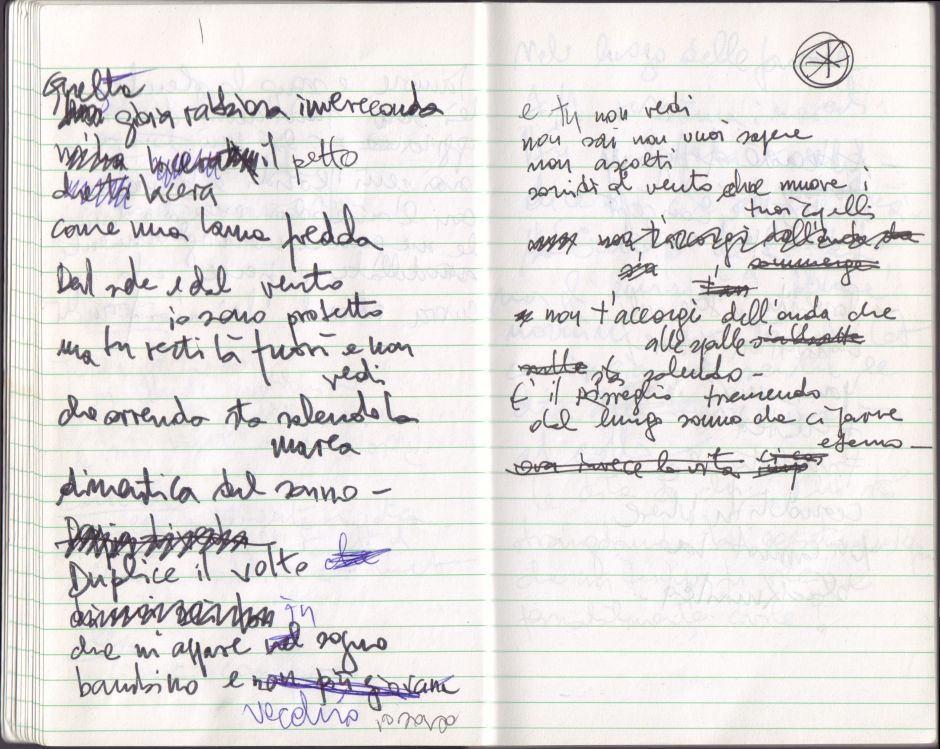 Questa
gioia rabbiosa invereconda
il petto
lacera
come una lama fredda
Dal sole e dal vento
io sono protetto
ma tu resti là fuori e non
vedi
che orrenda sta salendo la
marea
dimentica del sonno –
Duplice il volto
in
che mi appare sogno
bambino e non più giovane
vecchio
e tu non vedi
non sai non vuoi sapere
non ascolti
sorridi al vento che muove i
tuoi capelli
non t'accorgi dell'onda che
sommerge
non t'accorgi dell'onda che
alle spalle
sta salendo –
È il risveglio tremendo
del lungo sonno che ci parve
eterno –
ora invece la vita